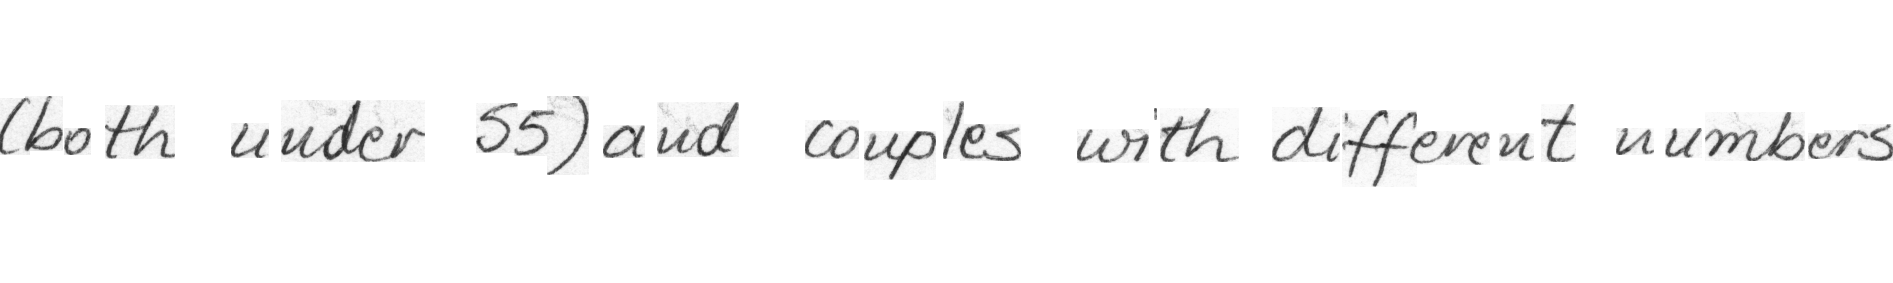 (both under 55) and couples with different numbers